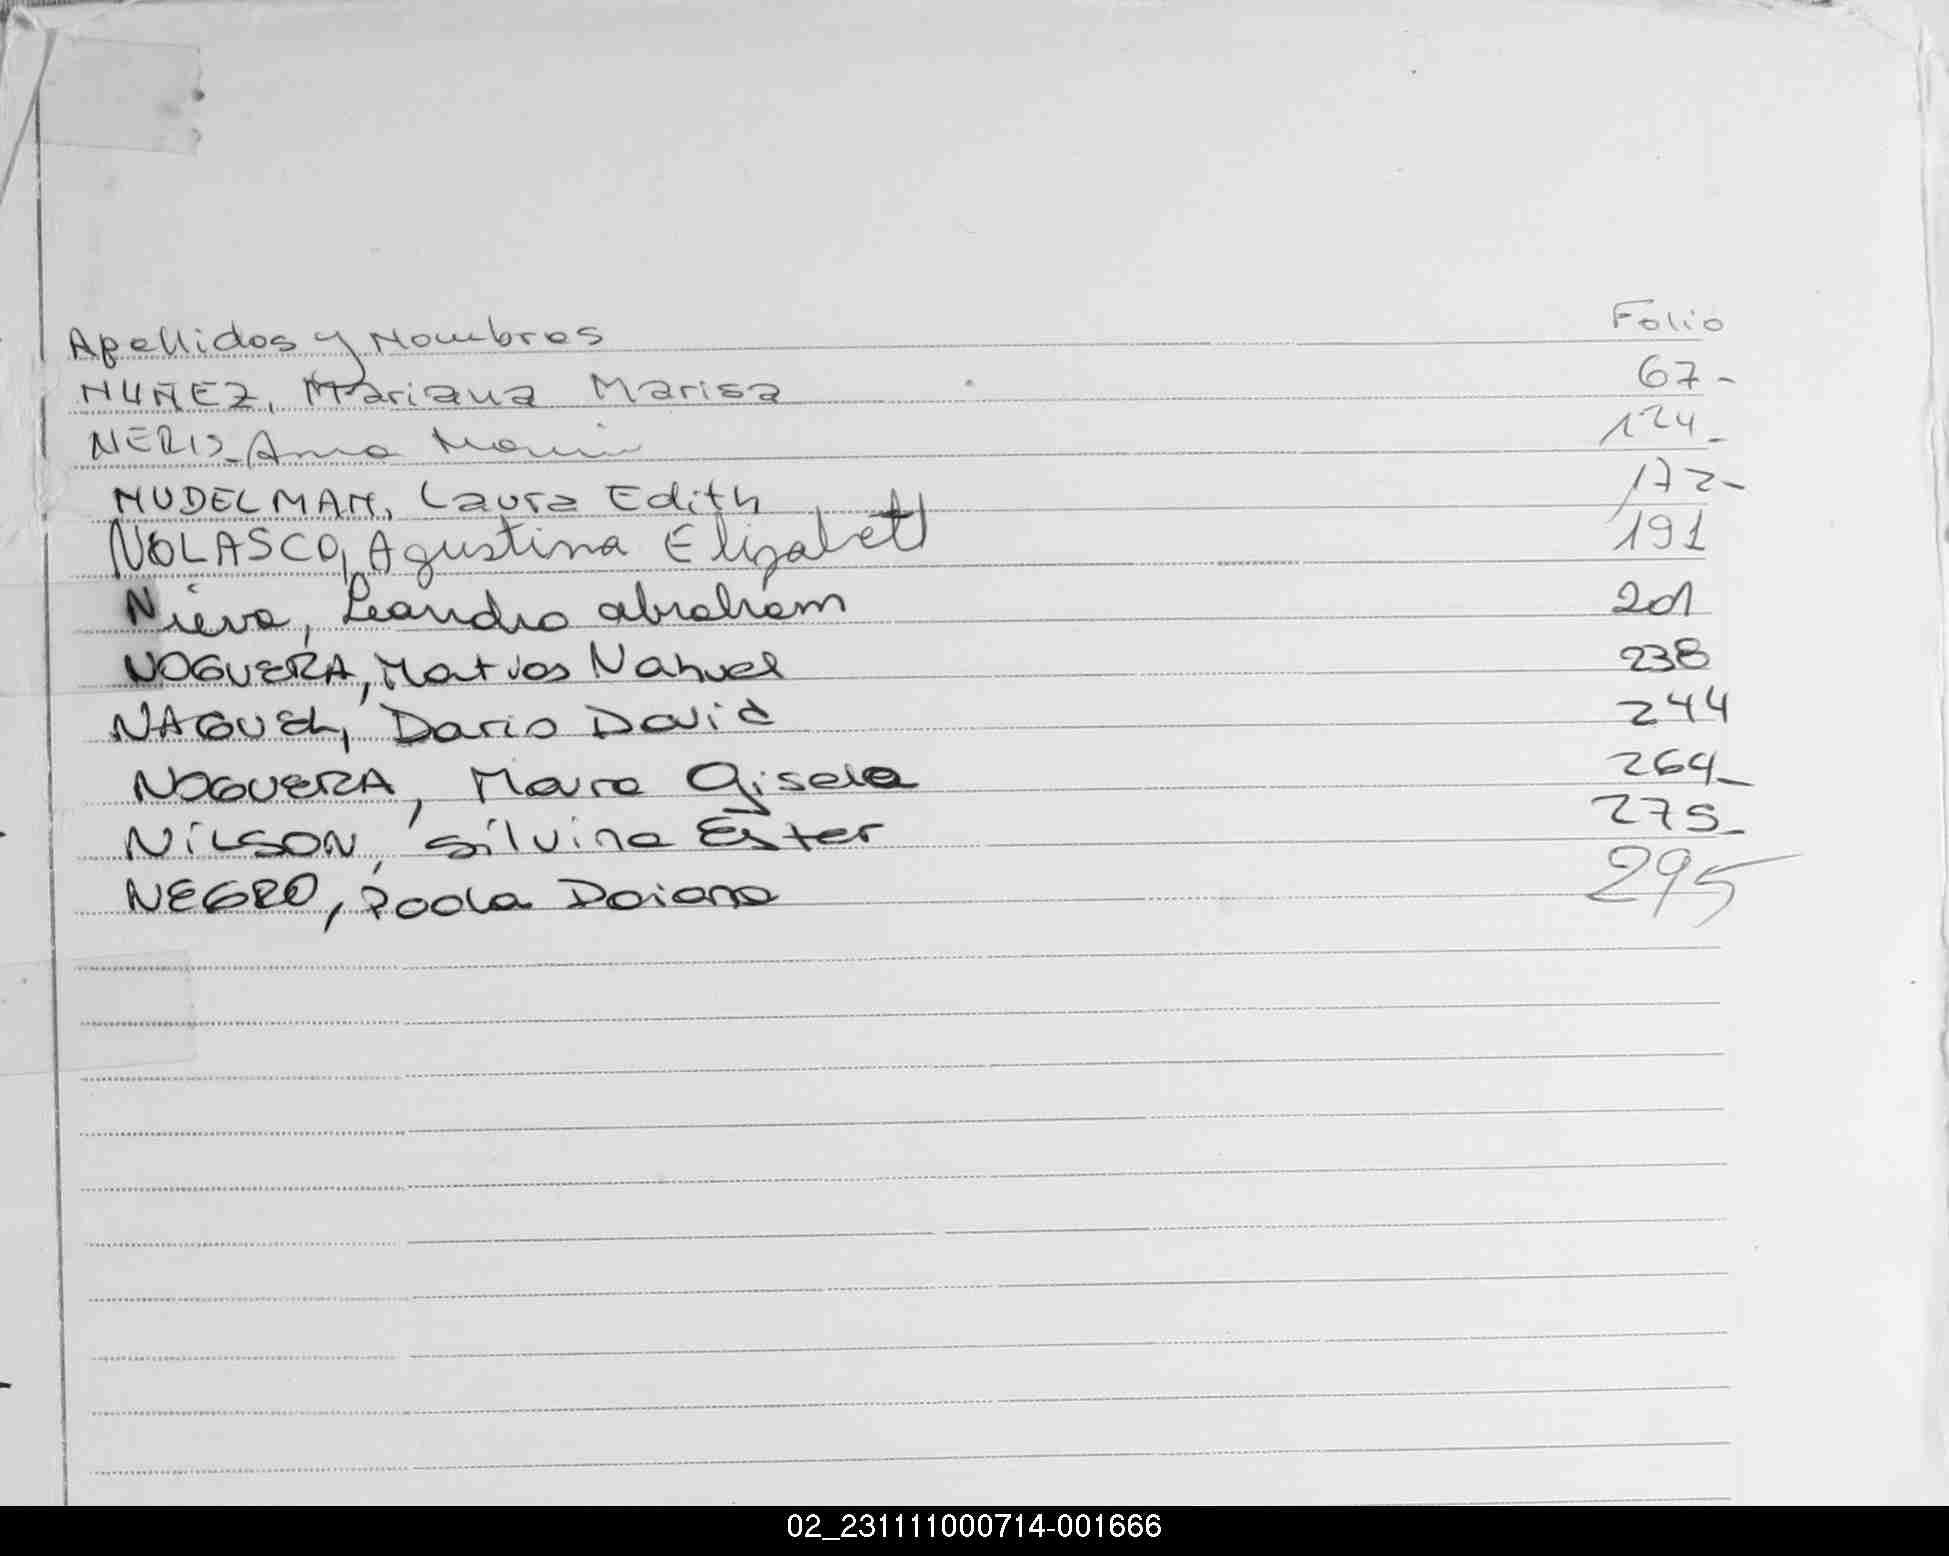 Apellidos y Nombres Folio
NUÑEZ, Mariana Marisa 67-
NERIS - Ana María 124-
NUDELMAN, Laura Edith 172-
NOLASCO, Agustina Elizabett 191
Nieva, Leandro abraham 201
NOGUERA, Matias Nahuel 238
NAGUEL, Dario David 244
NOGUERA, Mara Gisela 264-
NiLSON, Silvina Ester 275-
NEGRO, Paola Daiana 295
02_231111000714-001666